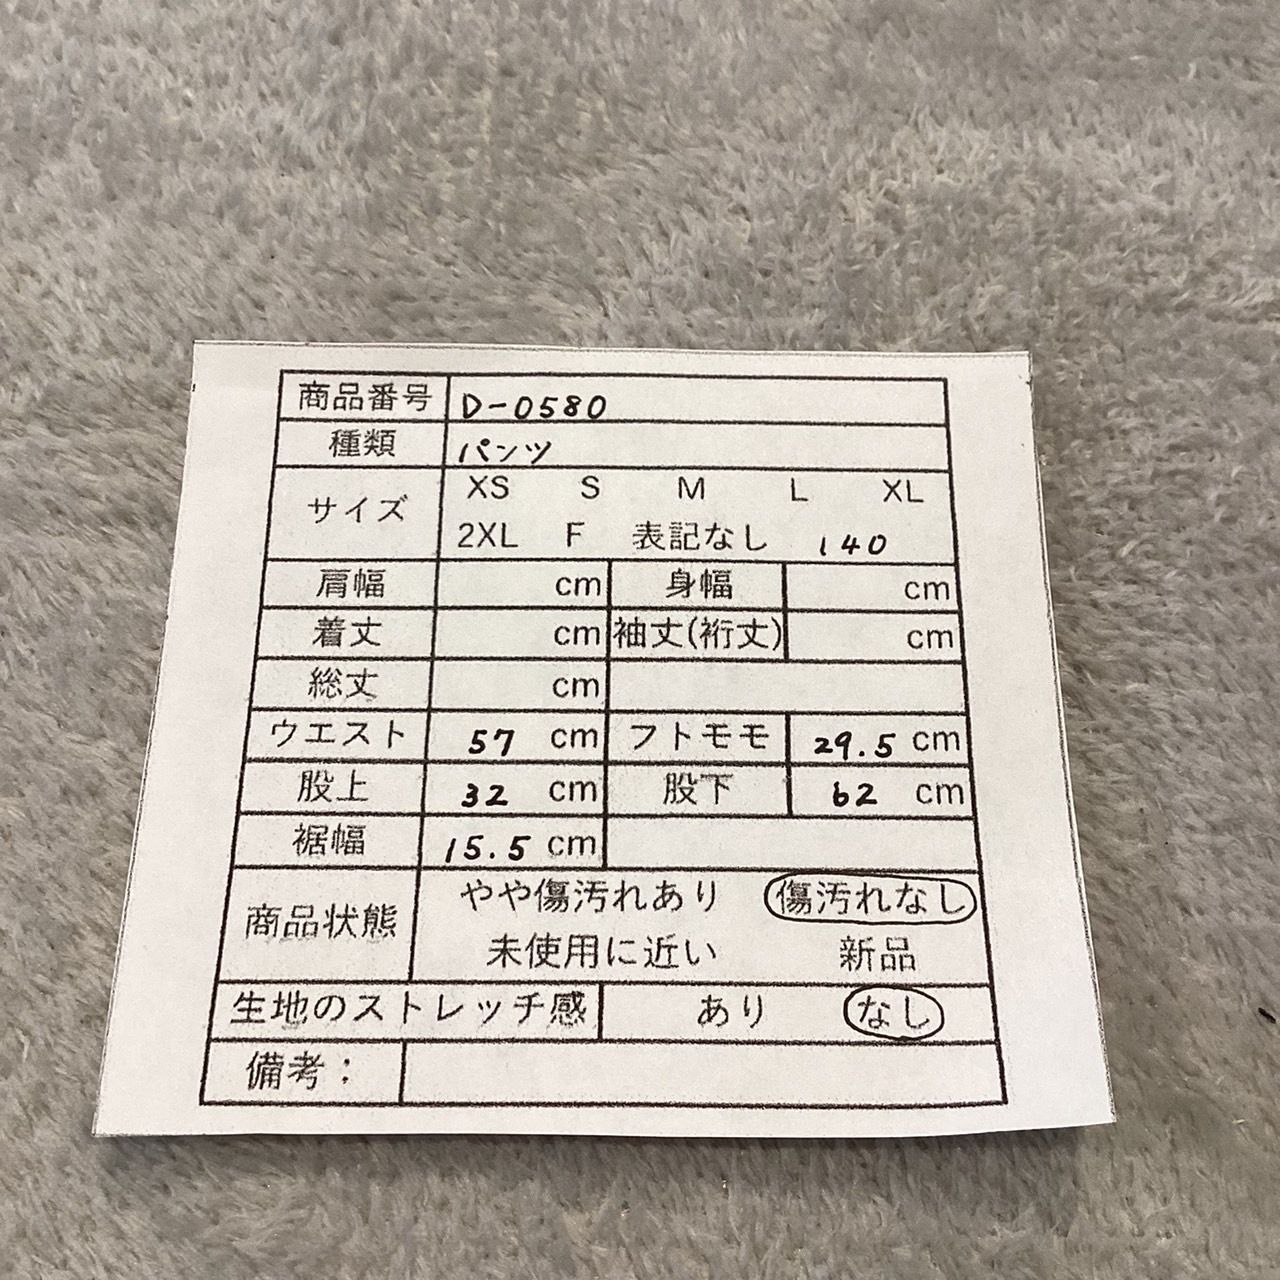 商品番号 D-0580
種類 パンツ
サイズ XS S M L XL
2XL F 表記なし 140
肩幅 cm 身幅 cm
着丈 cm 袖丈(裄丈) cm
総丈 cm
ウエスト 57 cm フトモモ 29.5 cm
股上 32 cm 股下 62 cm
裾幅 15.5 cm
商品状態 やや傷汚れあり 傷汚れなし
未使用に近い 新品
生地のストレッチ感 あり なし
備考：